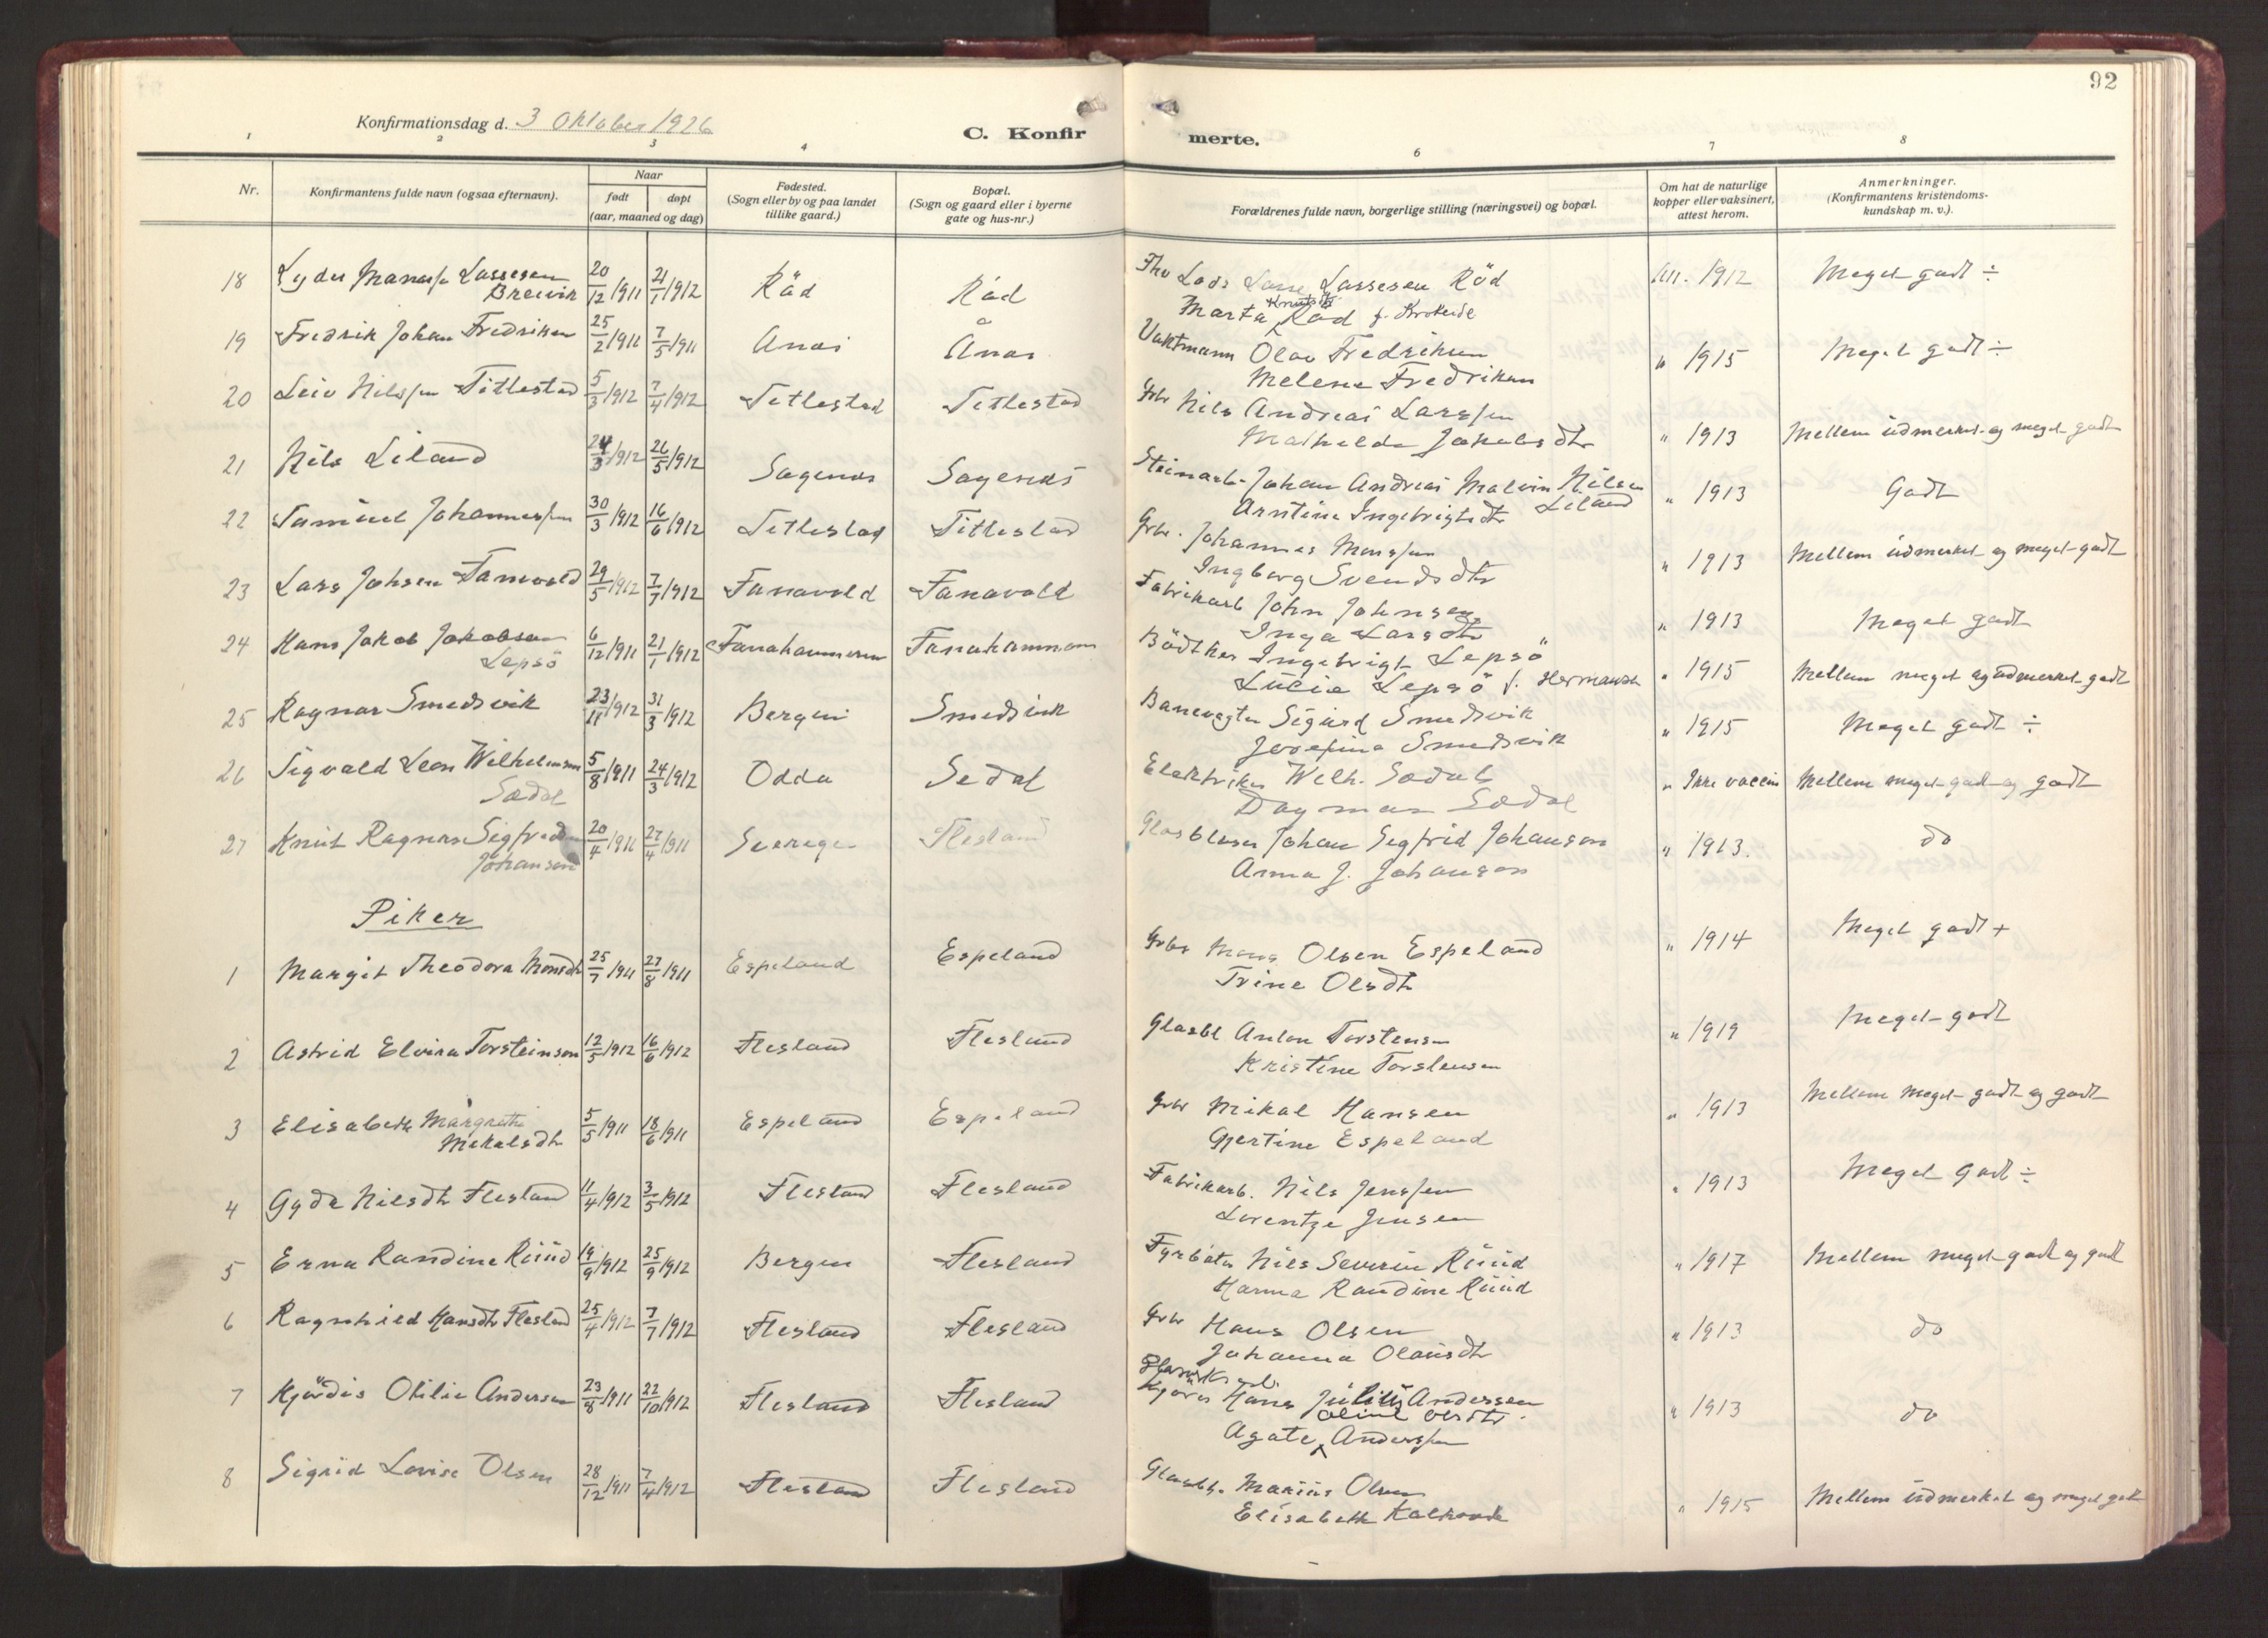 92
Konfirmationsdag d. 3 Oktober 1926
C. Konfir merte.
1 2 3 4 6 7 8
Nr.
Konfirmantens fulde navn (ogsaa efternavn).
Naar
født døpt
(aar, maaned og dag)
Fødested.
(Sogn eller by og paa landet
tillike gaard.)
Bopæl.
(Sogn og gaard eller i byerne
gate og hus-nr.)
Forældrenes fulde navn, borgerlige stilling (næringsvei) og bopæl.
Om hat de naturlige
kopper eller vaksinert,
attest herom.
Anmerkninger.
(Konfirmantens kristendoms-
kundskap m. v.).
18 Lyder Lassesen 20/12 1911 21/1 1912 Råd Råd Lassesen Röd 1912 Meget godt ÷
Breivik Marta Knutsdtr Råd f. Krokeide
19 Fredrik Johan Fredriksen 25/2 1911 7/5 1911 Ånæs Ånæs Vaktmann Olav Fredriksen " 1915 Meget godt ÷
Melene Fredriksen
20 Leiv Nilssen Titlestad 5/3 1912 7/4 1912 Titlestad Titlestad Grbr Nils Andreas Larssen " 1913 Mellem udmerket og meget godt
Mathelde Jakobsdtr
21 Nils Liland 24/3 1912 26/5 1912 Sagenes Sagenes Steinarb. Johan Andreas Malvin Nilsen " 1913 Godt
Liland
Arntine Ingebrigtsdtr
22 Samuel Johannessen 30/3 1912 16/6 1912 Titlestad Titlestad Grbr. Johannes Monssen " 1913 Mellem udmerket og meget godt
Ingborg Svendsdtr
23 Lars Johsen Fanavold 29/5 1912 7/7 1912 Fanavold Fanavold Fabrikarb John Johnsen " 1913 Meget godt
Inga Larsdtr
24 Hans Jakob Jakobsen 6/12 1911 21/1 1912 Fanahammeren Fanahammeren Bödtker Ingebrigt Lepsö " 1915 Mellem meget og udmerket godt
Lepsö Lucie Lepsö f. Hermansen
25 Ragnar Smedsvik 23/11 1912 31/3 1912 Bergen Smedsvik Banevagter Sigurd Smedsvik " 1915 Meget godt ÷
Josefine Smedsvik
26 Sigvald Leon Wilhelmsen 5/8 1911 24/3 1912 Odda Sedal Elektriker Wilh. Sædal " Ikke vaccin Mellem meget godt og godt
Sædal Dagmar Sædal
27 Knut Ragnar Sigfred 20/4 1911 27/4 1911 Sverige Flesland Glasblaser Johan Segfrid Johanson " 1913. do
Johanson Anna J. Johanson
Piker
1 Margit Theodora Monsdtr 25/7 1911 27/8 1911 Espeland Espeland Grbr Mons Olsen Espeland " 1914 Meget godt +
Trine Olsdtr
2 Astrid Elvira Torsteinson 12/5 1912 16/6 1912 Flesland Flesland Glasbl Anton Torstensen " 1919 Meget godt
Kristine Torstensen
3 Elisabeth Margrethe 5/5 1911 18/6 1911 Espeland Espeland Grbr Mikal Hansen " 1913 Mellem meget godt og godt
Mikalsdtr Gjertine Espeland
4 Gyda Nilsdtr Flesland 11/4 1912 3/5 1912 Flesland Flesland Fabrikarb. Nils Jenssen " 1913 Meget godt ÷
Lorentze Jensen
5 Erna Randine Ruud 19/9 1912 25/9 1912 Bergen Flesland Fyrböter Nils Severin Ruud " 1917 Mellem meget godt og godt
Hanna Randine Ruud
6 Ragnhild Hansdtr Flesland 25/4 1912 7/7 1912 Flesland Flesland Grbr Hans Olsen " 1913 do
Johanna Olausdtr
7 Hjördis Otilie Andersen 23/8 1911 22/10 1912 Flesland Flesland Hans Julius Andersen " 1913 do
Oline Olsdtr.
Agate Anderssen
8 Sigrid Lovise Olsen 28/12 1911 7/4 1912 Flesland Flesland Glasbl. Marius Olsen " 1915 Mellem udmerket og meget godt
Elisabeth